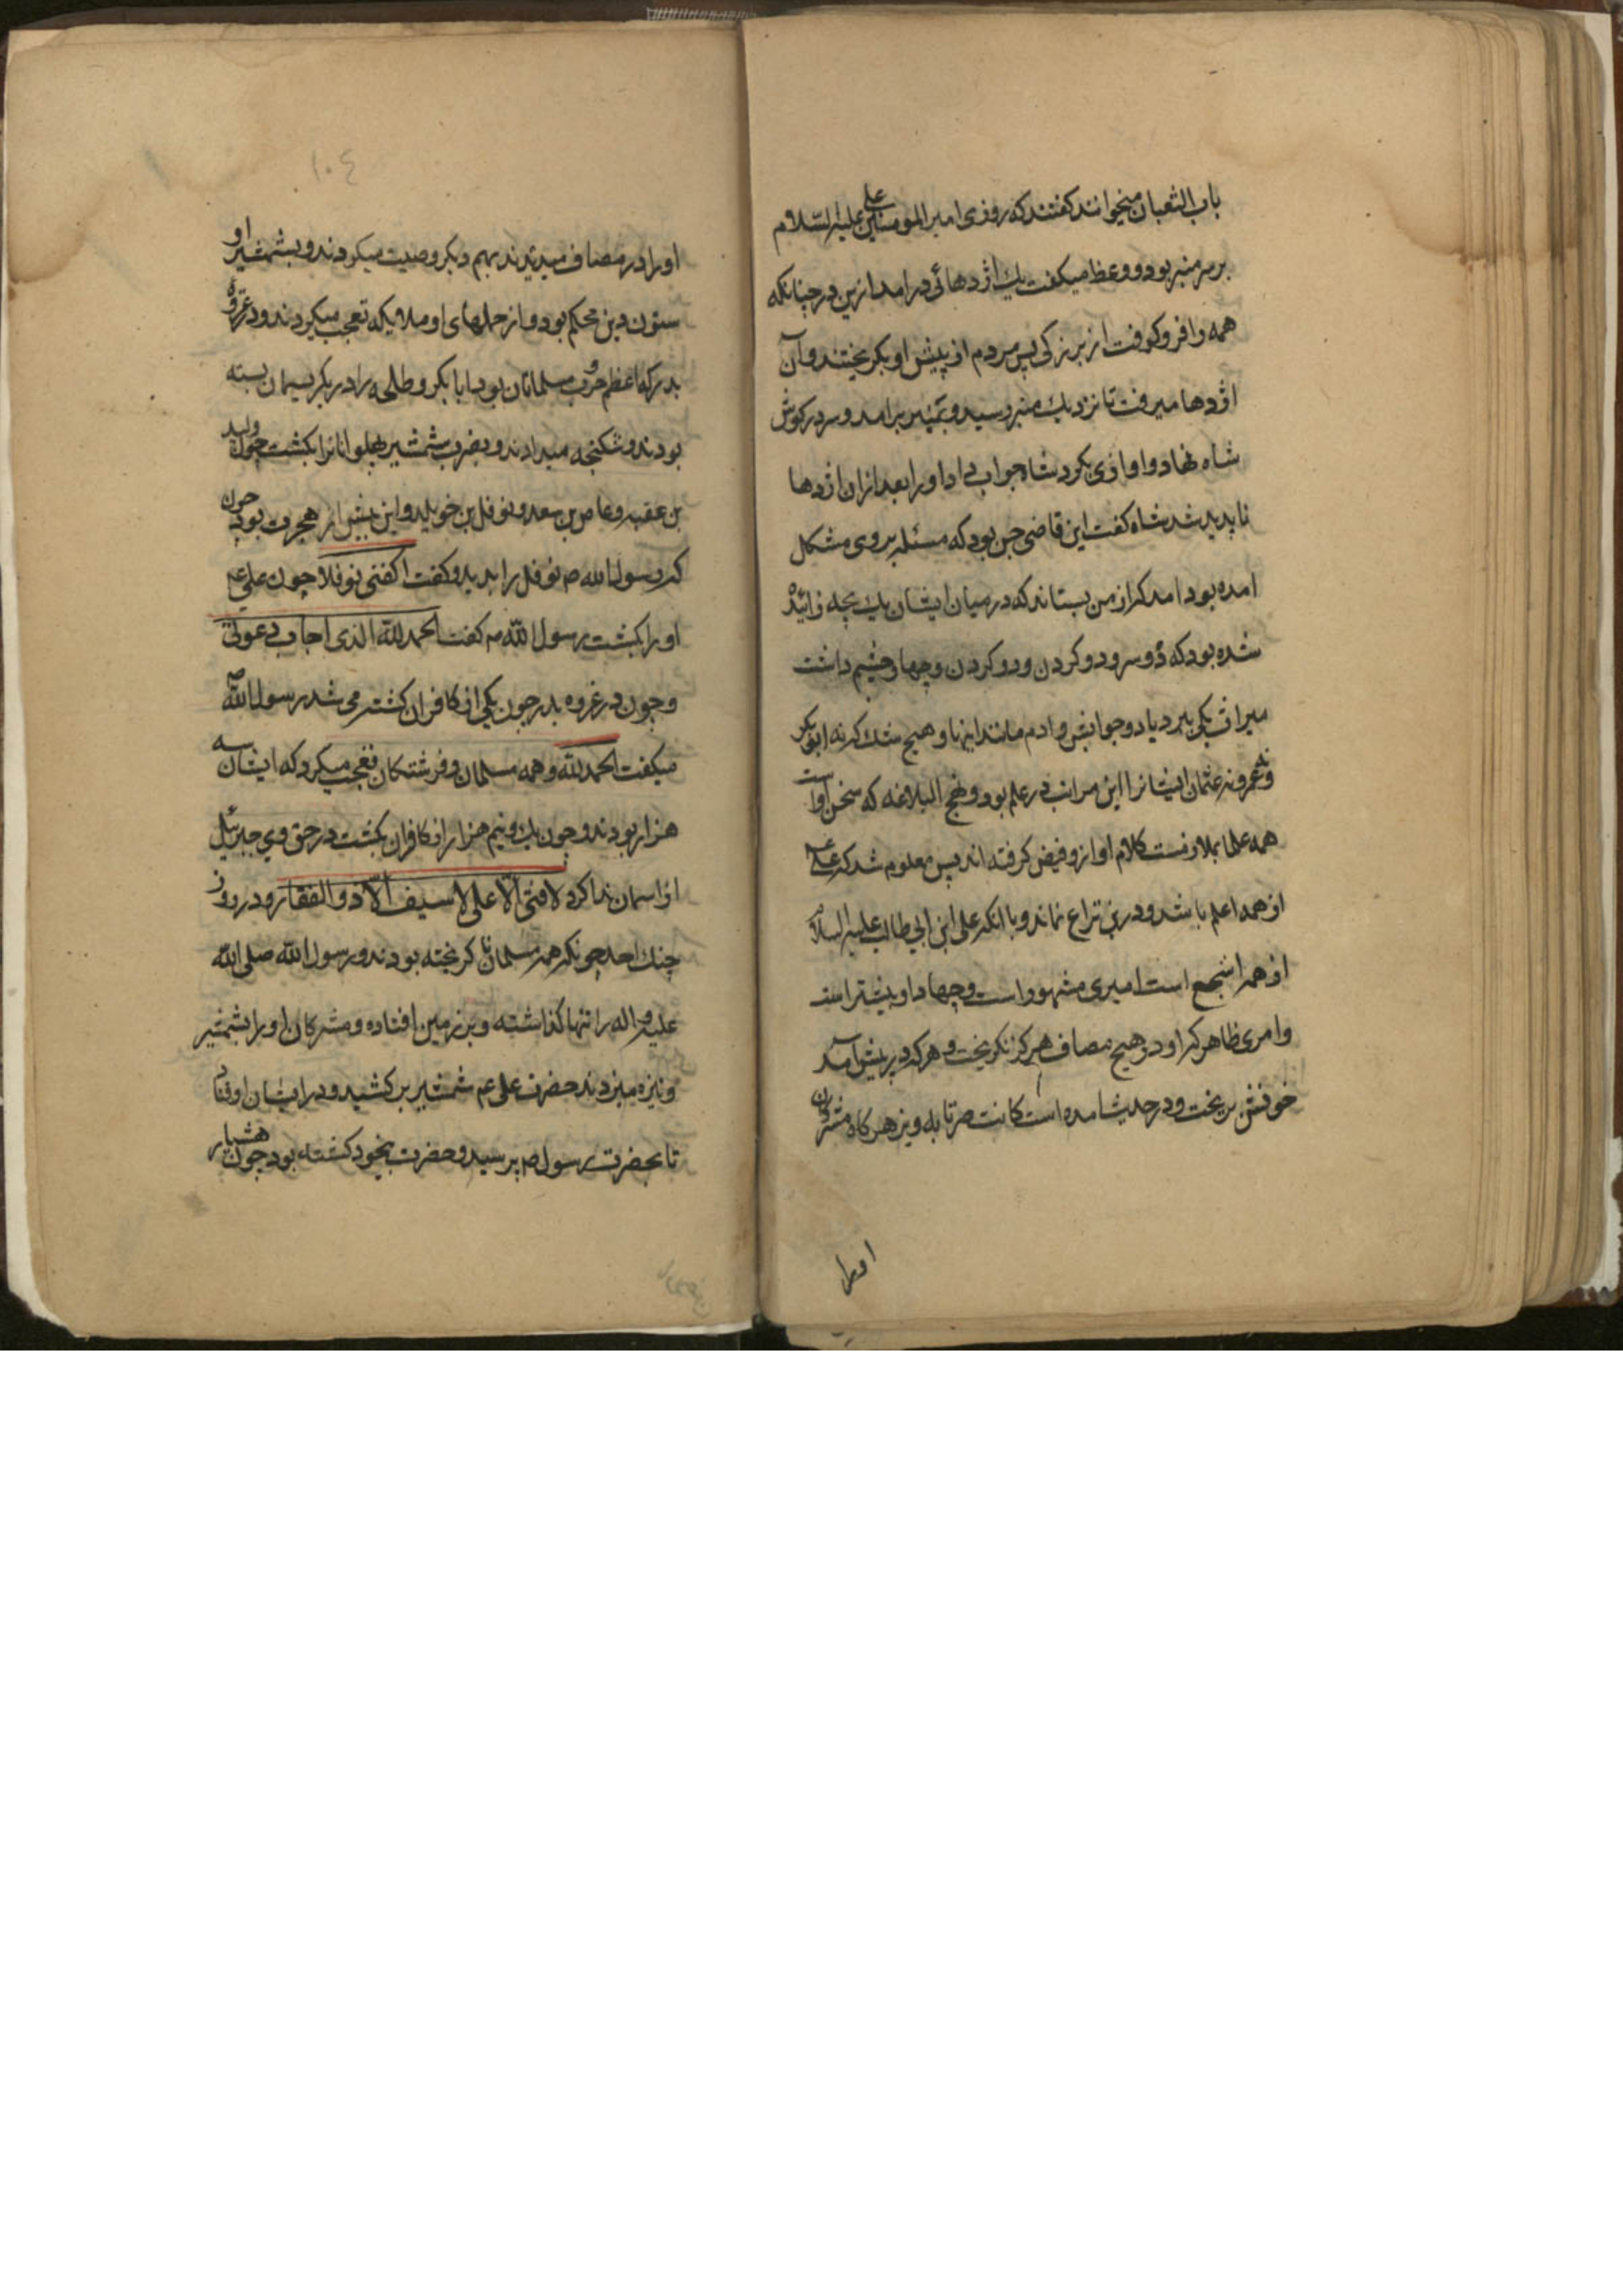 باب الثعبان میخوانند کفتند که روزی امیر المومنین علی علیه السلام
بر سر منبر بود و وعظ میکفت یك اژدهائی درامد ازین در چنانکه
همه را فرو کوفت از بزرکی پس مردم از پیش او بکریختند و آن
اژدها میرفت تا نزدیك منبر رسید و بمنبر برامد و سر در کوش
شاه نهاد و اوازی بکرد شاه جواب داد او را بعد ازان اژدها
ناپدید شد شاه کفت این قاضی جن بود که مسئله بر وی مشکل
امده بود امد که از من بستاند که در میان ایشان یك بچه زائیده
شده بود که دو سر و دو کردن و دو کردن و چهار چشم داشت
میراث یکی ببرد یا دو جوابش دادم مانند اینها و هیچ شك که نه ابو بکر
و نه عمر و نه عثمان ایشانرا این مراتب در علم نبود و نهج البلاغه که سخن اوست
همه علما بملازمت کلام او ازو فیض کرفته اند پس معلوم شد که علی
از همه اعلم باشد و درین نزاع نماند و با انکه علی ابن ابی طالب علیه السلام
از همه اشجع است امیری مشهور است و جهاد او بیشتر است
وامری ظاهر که او در هیچ مصاف هرکز نکریخت و هر که در پیش آمد
خونش بریخت و در حدیث امده است کانت ضرباته وتر هرکاه مشرکان
اورا
۱۰٤
او را در مصاف میدیدند بهم دیکر وصیت میکردند و بشمشیر او
ستون دین محکم بود و از حملهای او ملایکه تعجب میکردند و در غزوه
بدر که اعظم حروب مسلمانان بود ابا بکر و طلحه را در یکریسمان بسته
بودند و شکنجه میدادند و بضرب شمشیر پهلوانانرا بکشت چون ولید
بن عقبه و عاص بن سعد و نوفل بن خویلد و این پیش از هجرت بود چون
که رسول الله ص نوفل را بدید و کفت اکفنی نوفلا چون علی عم
او را بکشت رسول الله ص کفت الحمد لله الذی اجاب دعوتی
و چون در غزوه بدر چون یکی از کافران کشته می شد رسول الله ص
میکفت الحمد لله و همه مسلمان و فرشتکان تعجب میکرد که ایشان سه
هزار بودند و چون یك و نیم هزار از کافران بکشت در حق وی جبرئیل
از اسمان ندا کرد لا فتی الا علی لا سیف الا ذو الفقار و در روز
جنك احد چونکه همه مسلمانان کریخته بودند و رسول الله صلی الله
علیه و اله را تنها کذاشته و بر زمین افتاده و مشرکان او را بشمشیر
و نیزه میزدند حضرت علی عم شمشیر برکشید و در ایشان اوفتاد
تا بحضرت رسول ص برسید و حضرت بیخود کشته بود چون هشیار